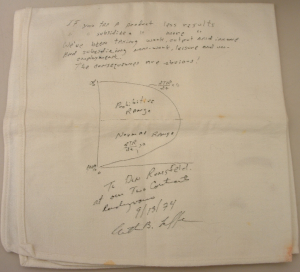 If you tax a product less results
" " subsidize a " more "
We've been taxing work, output and income
and subsidizing non-work, leisure and un-
employment.
The consequences are obvious!
Prohibitive
Range
Normal Range
To Don Rumsfeld
at our Two Continents
Rendezvous
9/13/74
Arthur B. Laffer